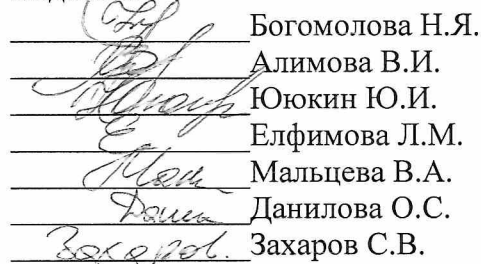 Богомолова Н.Я.
Алимова В.И.
Ююкин Ю.И.
Елфимова Л.М.
Мальцева В.А.
Данилова О.С.
Захаров. Захаров С.В.